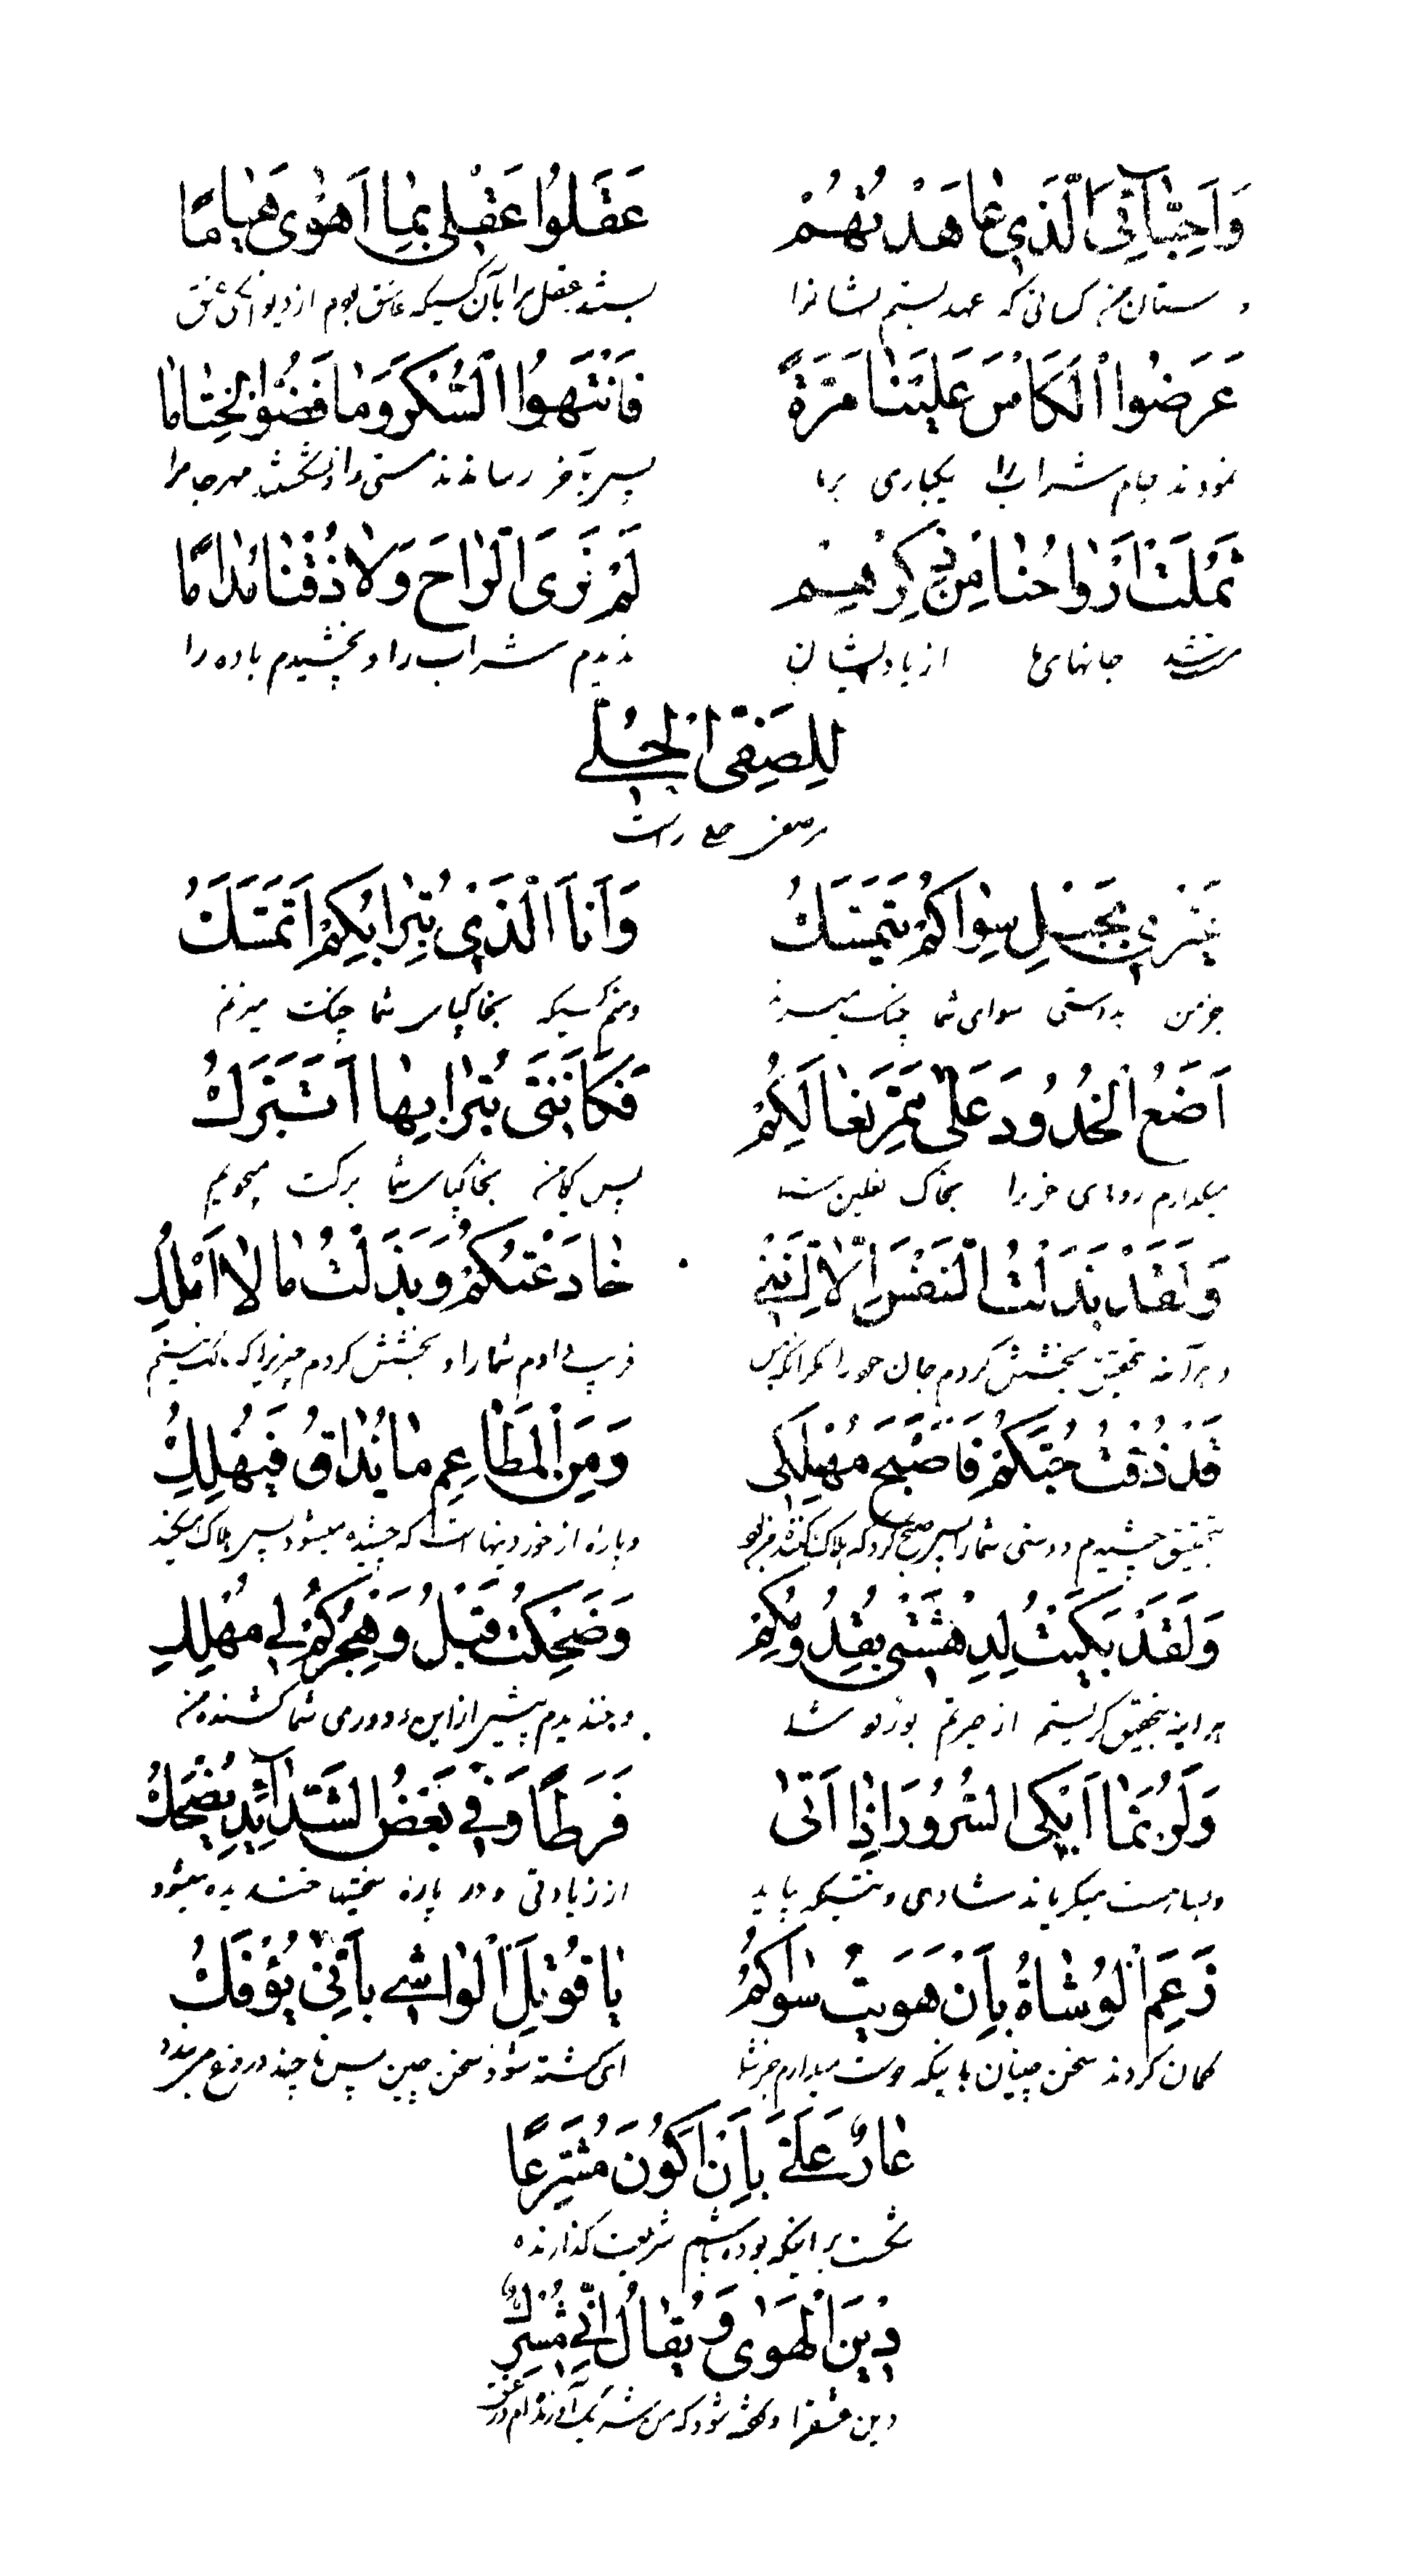 وَاَحِبّٰآئِىَ الَّذٖى عٰاهَدْتُهُمْ عَقَلُوا عَقْلٖى بِمٰا اَهْوٰى هَيٰامًا
دوستان من كسانى كه عهد بستم ايشانرا بستند عقل مرا بآن كسيكه عاشق بودم از ديوانگى عشق
عَرَضُوا الْكَاْسَ عَلَيْنٰا مَرَّةً فَانْتَهَوُا السُّكْرَ وَمٰا فَضُّوا الْخِتٰامٰا
نمودند جام شراب را يكبارى بر ما پس بآخر رساندند مستى را و نشكستند مهر جام را
ثَمِلَتْ اَرْوٰاحُنٰا مِنْ ذِكْرِهِمْ لَمْ نَرَى الرّٰاحَ وَلاٰ ذُقْنٰا مُدٰامًا
مست شد جانهاى ما از ياد ايشان نديدم شراب را و نچشيدم باده را
لِلصَفِىّ الْحِلّى
مر صفى حلى راست
غَيْرٖى بِحَبْلِ سِوٰاكُمْ يَتَمَسَّكُ وَاَنَا الَّذٖى بِتُرٰابِكُمْ اَتَمَسَّكُ
جز من بدوستى سواى شما چنگ ميزند و منم كسيكه بخاكپاى شما چنگ ميزنم
اَضَعُ الْخُدُودَ عَلٰى مَمَرِّ نِعٰالِكُمْ فَكَاَنَّنٖى بِتُرٰابِهٰا اَتَبَرَّكُ
ميگذارم روهاى خود را بخاك نعلين شما پس گويا من بخاكپاى شما بركت ميجويم
وَلَقَدْ بَذَلْتُ النَّفْسَ اِلّاٰ اِنَّنٖى خٰادَعْتُكُمْ وَبَذَلْتُ مٰا لاٰ اَمْلِكُ
و هر آينه بتحقيق بخشش كردم جان خود را مگر آنكه من فريب دادم شما را و بخشش كردم چيزيرا كه مالك نيستم
قَدْ ذُقْتُ حُبَّكُمْ فَاَصْبَحَ مُهْلِكٖى وَمِنَ الْمَطٰاعِمِ مٰا يُذٰاقُ فَيُهْلِكُ
بتحقيق چشيدم دوستى شما را پس صبح كرد كه هلاك كننده من بود و پارهٔ از خوردنيها است كه چشيده ميشود پس هلاك ميكند
وَلَقَدْ بَكَيْتُ لِدِهْشَتٖى بِقُدُومِكُمْ وَضَحِكْتُ قَبْلُ وَهَجْرُكُمْ لٖى مُهْلِكُ
هر آينه بتحقيق گريستم از حيرتم بورود شما و خنديدم پيش از اين و دورى شما كشنده من
وَلَرُبَّمٰا اَبْكَى السُّرُورَ اِذٰا اَتٰى فَرَطًا وَفٖى بَعْضُ الشَّدٰآئِدِ يُضْحَكُ
و بسا هست ميگرياند شادى وقتيكه بيايد از زيادتى و در پارهٔ سختيها خنديده ميشود
زَعَمَ الْوُشٰاةُ بِاَنْ هَوَيتُ سِوٰاكُمُ يٰا قُوتِلَ الْوٰاشٖى بِاَنّٖى يُؤْفَكُ
گمان كردند سخن چينان باينكه دوست ميدارم جز شما اى كشته شود سخن چين پس تا چند دروغ ميبندد
عٰارٌ عَلَىَّ بِاَنْ اَكُونَ مُشَرِّعًا
ننگست بر اينكه بوده باشم شريعت گذارنده
دٖينَ الْهَوٰى وَيُقٰالُ اِنّٖى مُشْرِكٌ
دين عشقرا و گفته شود كه من شريك آورنده ام در عشق